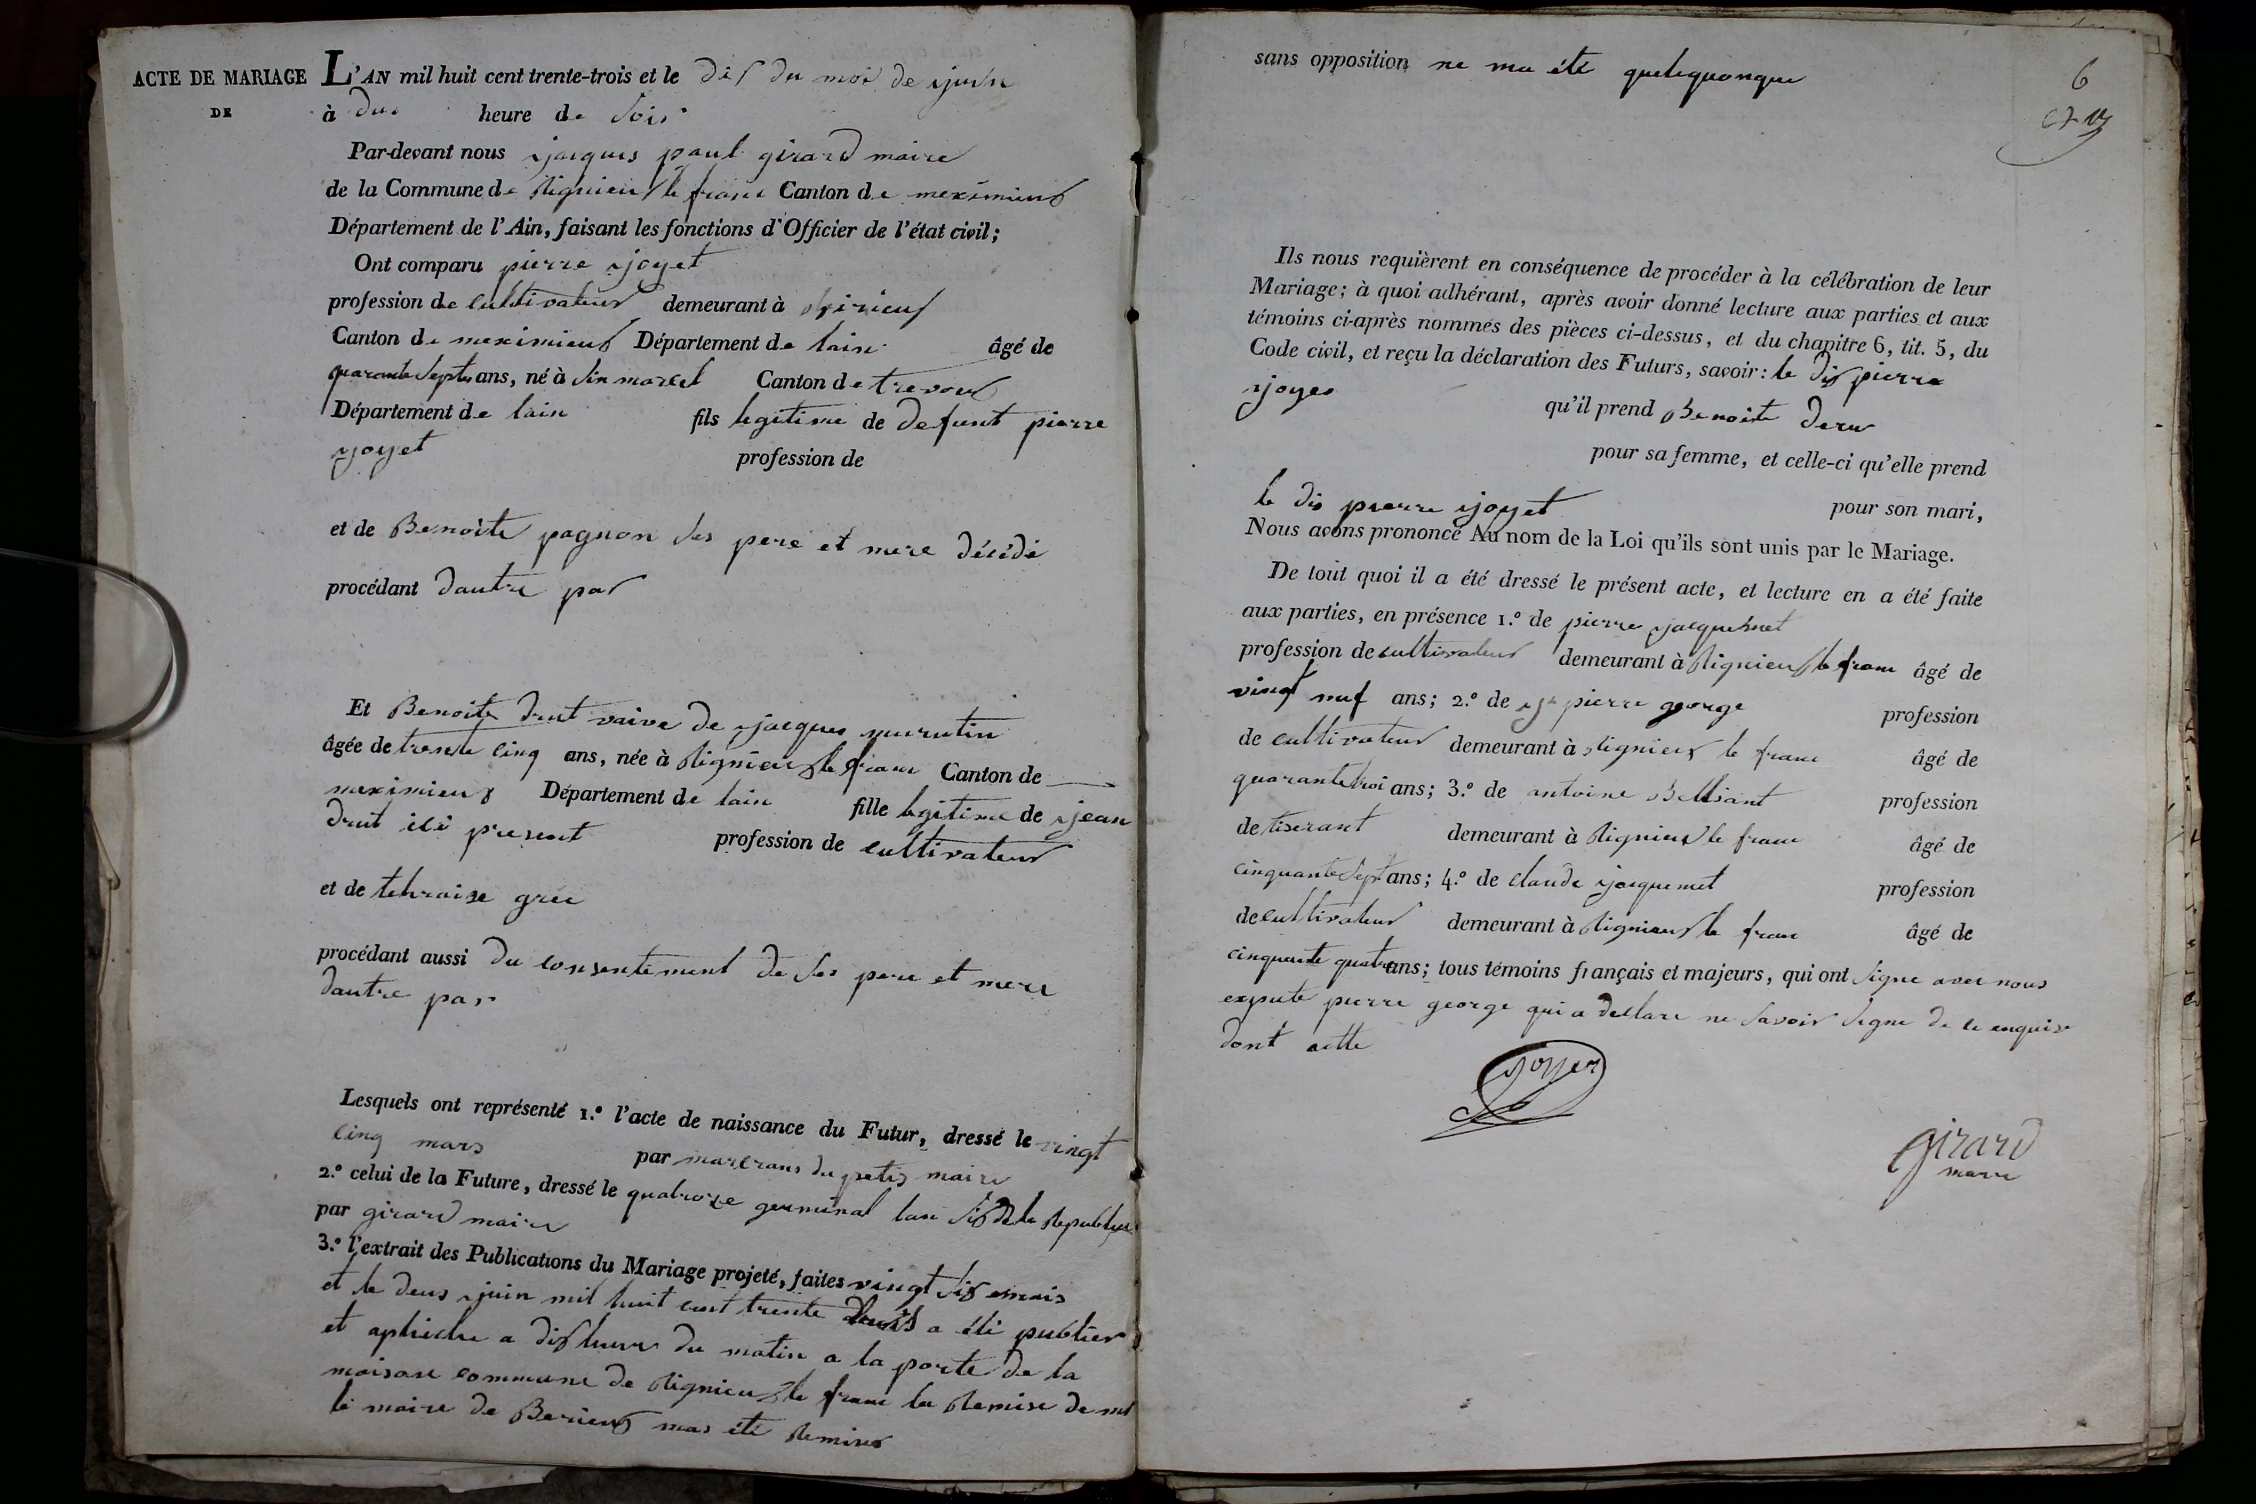 ACTE DE MARIAGE
DE
L'AN mil huit cent trente-trois et le dix du mois de juin
à heure de soir
Par-devant nous jacques paul girard maire
de la Commune de Rignieux le franc Canton de meximieux
Département de l'Ain, faisant les fonctions d'Officier de l'état civil;
Ont comparu pierre joyet
profession de cultivateur demeurant à
Canton de meximieux Département de lain âgé de
quarante sept ans, né à Sin marcel Canton de trevoux
Département de lain fils legitime de defunt pierre
joyet profession de
et de Benoite pagnon ses pere et mere décédé
procédant dautre par
Et Benoite drut vaive de jacques
âgée de trente cinq ans, née à Rignieux le franc Canton de
meximieux Département de lain fille legitime de jean
drut ici present profession de cultivateur
et de tehraise
procédant aussi du consentiment de ses pere et mere
dautre par
Lesquels ont représenté 1.º l'acte de naissance du Futur, dressé le vingt
cinq mars par maire
2.º celui de la Future, dressé le quatorze germinal lan six de la Republique
par girard maire
3.º l'extrait des Publications du Mariage projeté, faites vingt six
et le deux juin mil huit cent trente a été publier
et aphiche a dix heure du matin a la porte de la
maison commune de Rignieux le franc la Remise de
le maire de mas été Remise
6
sans opposition ne ma été quelequonque
Ils nous requièrent en conséquence de procéder à la célébration de leur
Mariage; à quoi adhérant, après avoir donné lecture aux parties et aux
témoins ci-après nommés des pièces ci-dessus, et du chapitre 6, tit. 5, du
Code civil, et reçu la déclaration des Futurs, savoir: le dis pierre
joyes qu'il prend Benoite
pour sa femme, et celle-ci qu'elle prend
le dis pierre joyet pour son mari,
Nous avons prononcé Au nom de la Loi qu'ils sont unis par le Mariage.
De tout quoi il a été dressé le présent acte, et lecture en a été faite
aux parties, en présence 1.º de pierre jacquemet
profession de cultivateur demeurant à Rignieux le franc âgé de
vingt nuf ans; 2.º de pierre george profession
de cultivateur demeurant à Rignieux le franc âgé de
quarante troi ans; 3.º de antoine profession
de tiserant demeurant à Rignieux le franc âgé de
cinquante sept ans; 4.º de claude jacquemet profession
de cultivateur demeurant à Rignieux le franc âgé de
cinquante quatre ans; tous témoins français et majeurs, qui ont signe avec nous
pierre george qui a declare ne savoir signe de ce enquis
dont acte
joyet
girard
maire